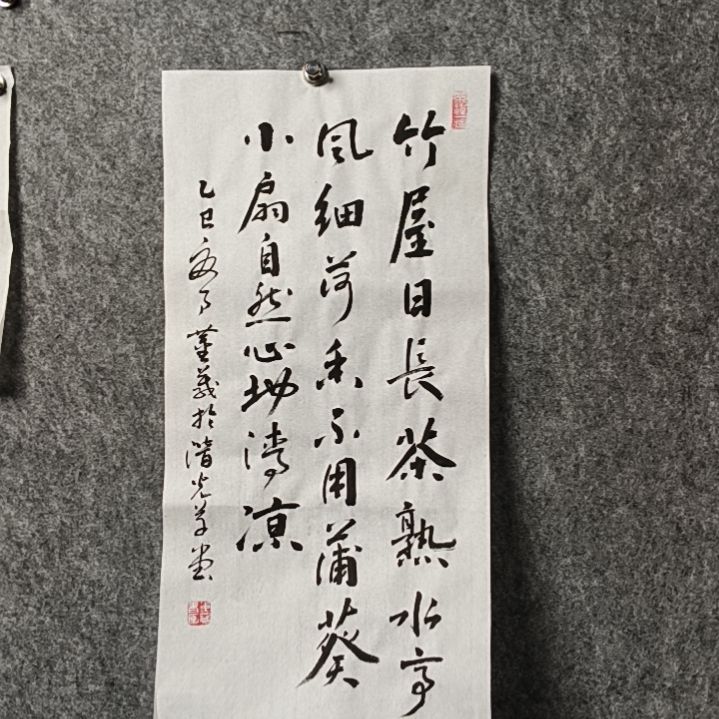 竹屋日長茶熟水亭
風細荷香不用蒲葵
小扇自然心地清凉
乙巳夏月堇義於潛光草堂